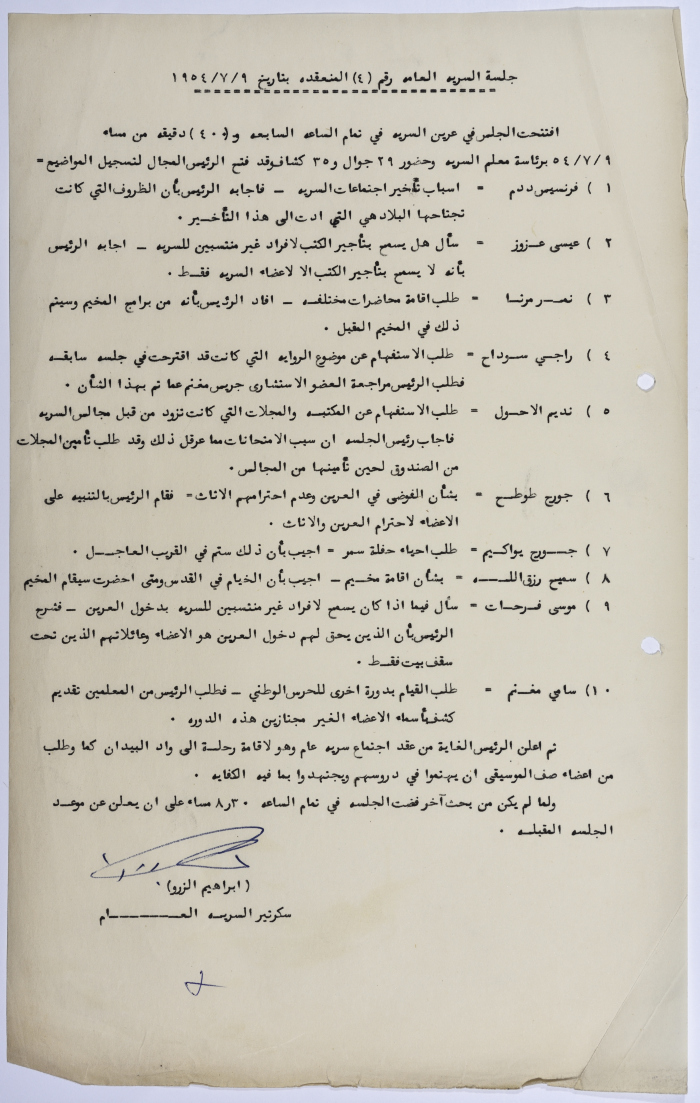 جلسة السريه العامه رقم (٤) المنعقده بتاريخ ١٩٥٤/٧/٩
افتتحت الجلس في عرين السريه في تمام الساعه السابعه و(٤٠) دقيقه من مساء
٥٤/٧/٩ برئاسة معلم السريه وحضور ٢٩ جوال و٣٥ كشاف وقد فتح الرئيس المجال لتسجيل المواضيع =
١ ) فرنسيس ددم = اسباب تأخير اجتماعات السريه – فاجابه الرئيس بأن الظروف التي كانت
تجتاحها البلاد هي التي ادت الى هذا التأخـير .
٢ ) عيسى عـزوز = سأل هل يسمح بتأجير الكتب لافراد غير منتسبين للسريه – اجابه الرئيس
بأنه لا يسمح بتأجير الكتب الا لاعضاء السريه فقـط .
٣ ) نمـر مرتـا = طلب اقامة محاضرات مختلفه – افاد الرئيس بأنه من برامج المخيم وسيتم
ذلك في المخيم المقبل .
٤ ) راجـي سـوداح = طلب الاستفهام عن موضوع الروايه التي كانت قد اقترحت في جلسه سابقـه
فطلب الرئيس مراجعة العضو الاستشارى جريس مغنم عما تم بهـذا الشأن .
٥ ) نديم الاحـول = طلب الاستفهام عن المكتبـه والمجلات التي كانت تزود من قبل مجالس السريه
فاجاب رئيس الجلسه ان سبب الامتحانات مما عرقل ذلك وقد طلب تأمين المجلات
من الصندوق لحين تأمينها من المجالس .
٦ ) جورج طوطـح = بشأن الفوضى في العرين وعدم احترامهم الاثاث = فقام الرئيس بالتنبيه على
الاعضاء لاحترام العرين والاثاث .
٧ ) جــورج يواكـيم = طلب احياء حفلة سمر = اجيب بأن ذلك ستم في القريب العـاجـــل .
٨ ) سميح رزق اللــه = بشأن اقامة مخـيم – اجيب بأن الخيام في القدس ومتى احضرت سيقام المخيم
٩ ) موسى فـرحـات = سأل فيما اذا كان يسمح لافراد غير منتسبين للسريه بدخول العرين – فشرح
الرئيس بأن الذين يحق لهم دخول العرين هو الاعضاء وعائلاتهم الذين تحت
سقف بيت فقـط .
١٠) سامي مغـنم = طلب القيام بدورة اخرى للحرس الوطني – فطلب الرئيس من المعلمين تقديم
كشف بأسماء الاعضاء الغير مجتازين هذه الدوره .
ثم اعلن الرئيس الغاية من عقد اجتماع سريه عام وهو لاقامة رحلـة الى واد البيدان كما وطلب
من اعضاء صف الموسيقى ان يهتموا في دروسهم ويجتهدوا بما فيه الكفايه .
ولما لم يكن من بحث آخر فضت الجلسه في تمام الساعه ٨ر٣٠ مساء على ان يعلن عن موعـد
الجلسه المقبلـه .
(ابراهيم الزرو)
سكرتير السريـه العـــــــام